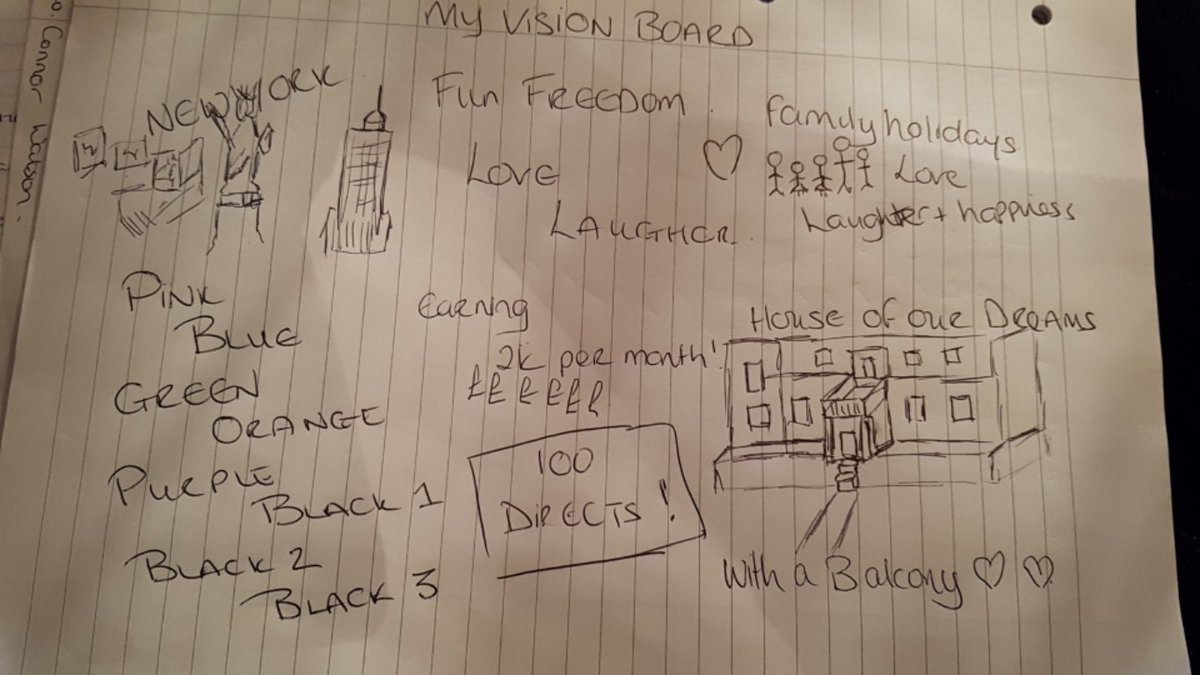 My VISION BOARD
NEW YORK
Fun FREEDOM
LOVE
LAUGHTER.
Family holidays
Love
Laughter + happiness
PINK
BLUE
GREEN
ORANGE
PURPLE
BLACK 1
BLACK 2
BLACK 3
Earning
2K per month!
£££ £££
100
DIRECTS!
House of our DREAMS
With a Balcony